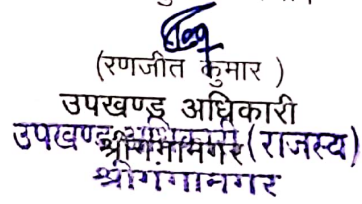 (रणजीत कुमार )
उपखण्ड अधिकारी
श्रीगंगानगर
उपखण्ड अधिकारी (राजस्व)
श्रीगंगानगर